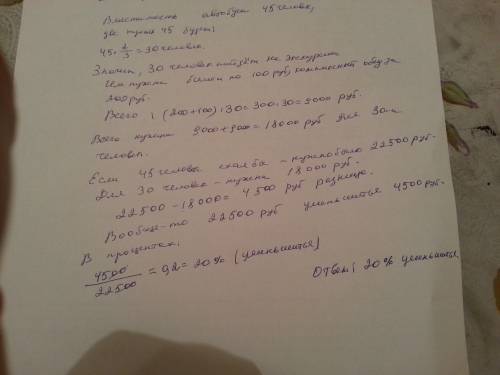 Вместимость автобуса 45 человек,
две трети 45 будет
45 · 2/3 = 30 человек.
Значит, 30 человек пойдёт на экскурсию
Им нужны билеты по 100 руб, комплексный обед за
200 руб.
Всего: (200+100)·30=300·30=9000 руб.
Всего нужно 9000+9000=18000 руб для 30и
человек.
Если 45 человек ехал бы – нужно было 22500 руб.
Для 30 человек – нужна 18000 руб.
22500-18000=4500 руб разницу.
Вообще-то 22500 руб уменьшитье 4500 руб.
В процентах:
4500/22500 = 0,2 = 20% (уменьшитье)
Ответ: 20% уменьшитье